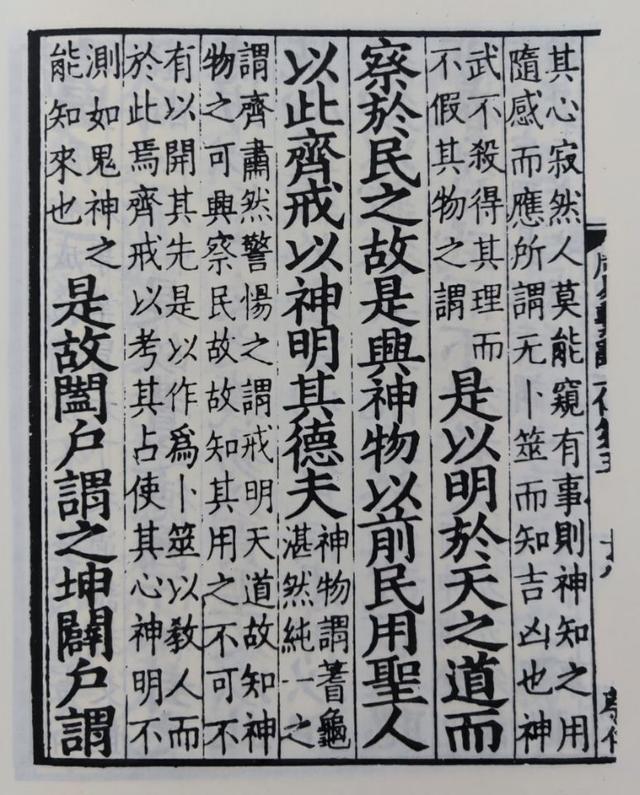 其心寂然人莫能窺有事則神知之用
隨感而應所謂无卜筮而知吉凶也神
武不殺得其理而
不假其物之謂
是以明於天之道而
察於民之故是興神物以前民用聖人
以此齊戒以神明其德夫
神物謂蓍龜
湛然純一之
謂齊肅然警惕之謂戒明天道故知神
物之可興察民故故知其用之不可不
有以開其先是以作爲卜筮以教人而
於此焉齊戒以考其占使其心神明不
測如鬼神之
能知來也
是故闔戶謂之坤闢戶謂